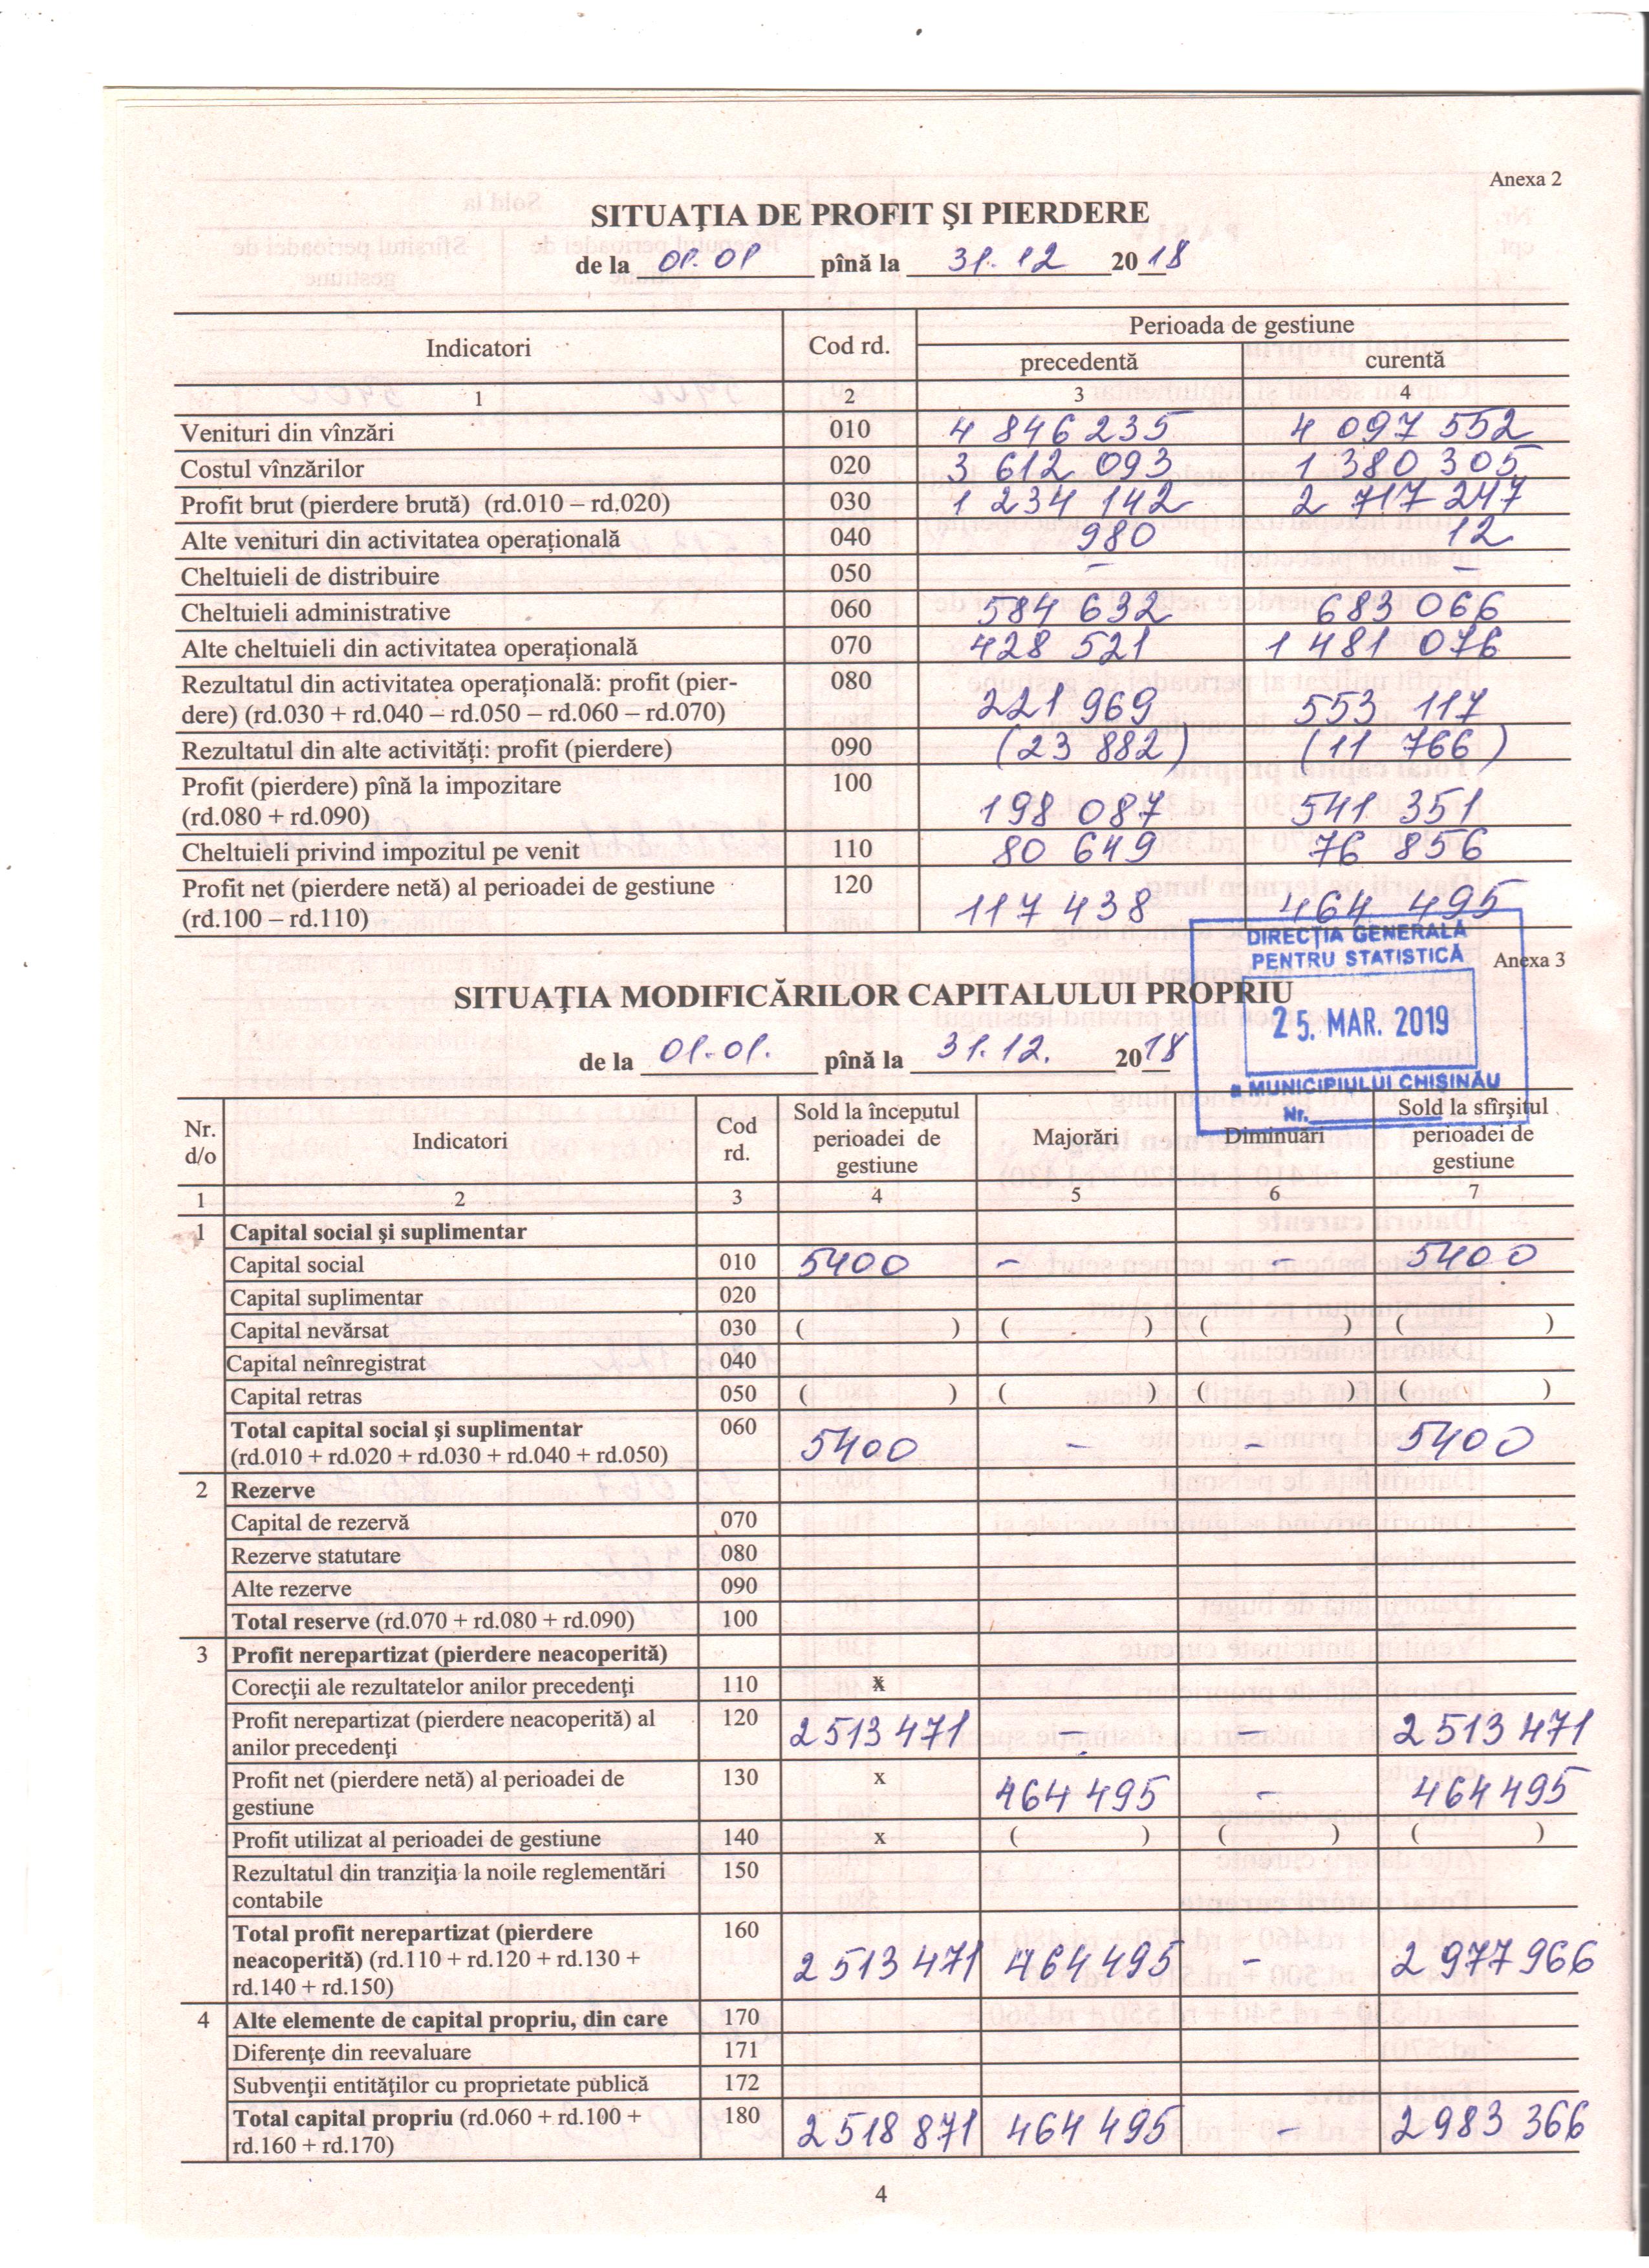 Anexa 2
SITUAŢIA DE PROFIT ŞI PIERDERE
de la 01.01 pînă la 31.12 2018
Indicatori Cod rd. Perioada de gestiune
precedentă curentă
1 2 3 4
Venituri din vînzări 010 4 846 235 4 097 552
Costul vînzărilor 020 3 612 093 1 380 305
Profit brut (pierdere brută) (rd.010 – rd.020) 030 1 234 142 2 717 247
Alte venituri din activitatea operaţională 040 980 12
Cheltuieli de distribuire 050 – –
Cheltuieli administrative 060 584 632 683 066
Alte cheltuieli din activitatea operaţională 070 428 521 1 481 076
Rezultatul din activitatea operaţională: profit (pier- 080
dere) (rd.030 + rd.040 – rd.050 – rd.060 – rd.070) 221 969 553 117
Rezultatul din alte activităţi: profit (pierdere) 090 (23 882) (11 766)
Profit (pierdere) pînă la impozitare 100
(rd.080 + rd.090) 198 087 541 351
Cheltuieli privind impozitul pe venit 110 80 649 76 856
Profit net (pierdere netă) al perioadei de gestiune 120
(rd.100 – rd.110) 117 438 464 495
DIRECŢIA GENERALĂ
PENTRU STATISTICĂ
Anexa 3
SITUAŢIA MODIFICĂRILOR CAPITALULUI PROPRIU
25. MAR. 2019
de la 01.01. pînă la 31.12. 2018
a MUNICIPIULUI CHIŞINĂU
Nr.
Nr. d/o Indicatori Cod rd. Sold la începutul perioadei de gestiune Majorări Diminuări Sold la sfîrşitul perioadei de gestiune
1 2 3 4 5 6 7
1 Capital social şi suplimentar
Capital social 010 5400 – – 5400
Capital suplimentar 020
Capital nevărsat 030 ( ) ( ) ( ) ( )
Capital neînregistrat 040
Capital retras 050 ( ) ( ) ( ) ( )
Total capital social şi suplimentar 060
(rd.010 + rd.020 + rd.030 + rd.040 + rd.050) 5400 – – 5400
2 Rezerve
Capital de rezervă 070
Rezerve statutare 080
Alte rezerve 090
Total reserve (rd.070 + rd.080 + rd.090) 100
3 Profit nerepartizat (pierdere neacoperită)
Corecţii ale rezultatelor anilor precedenţi 110 x
Profit nerepartizat (pierdere neacoperită) al 120
anilor precedenţi 2 513 471 – – 2 513 471
Profit net (pierdere netă) al perioadei de 130 x
gestiune 464 495 – 464 495
Profit utilizat al perioadei de gestiune 140 x ( ) ( ) ( )
Rezultatul din tranziţia la noile reglementări 150
contabile
Total profit nerepartizat (pierdere 160
neacoperită) (rd.110 + rd.120 + rd.130 +
rd.140 + rd.150) 2 513 471 464 495 – 2 977 966
4 Alte elemente de capital propriu, din care 170
Diferenţe din reevaluare 171
Subvenţii entităţilor cu proprietate publică 172
Total capital propriu (rd.060 + rd.100 + 180
rd.160 + rd.170) 2 518 871 464 495 – 2 983 366
4